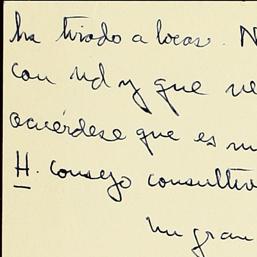 ha tirado a locas. N
con Ud y que ve
acuérdese que es m
H. consejo consultiv
un gran